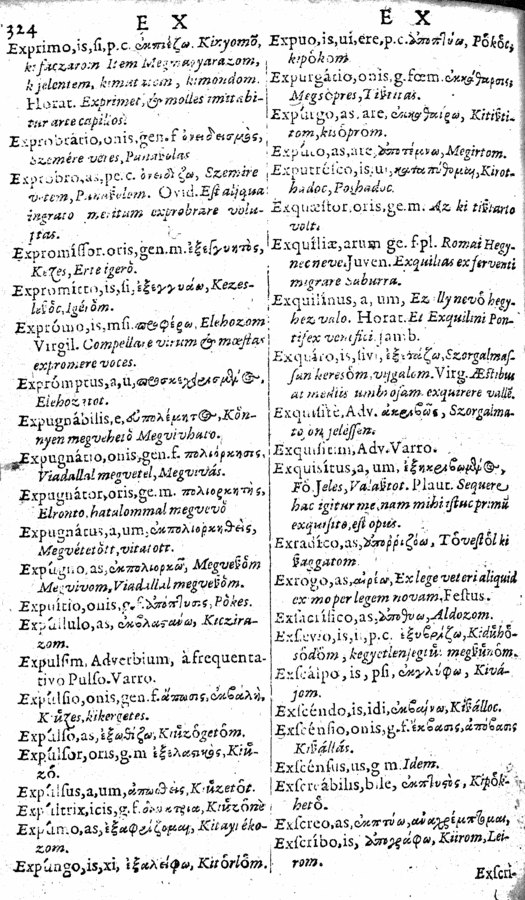 324
E X
Exprimo, is, si, p.c. ἐκπιέζω. Kinyomō,
ki faczarom Item Megmagyarazom,
kijelentem, kimutatom, kimondom.
Horat. Exprimet, & molles imitabi-
tur arte capillos.
Exprobratio, onis, gen. f ὀνειδισμὸς,
Szemére vetes, Panaſolas
Exprobro, as, pe. c. ὀνειδίζω, Szemire
vetem, Panaſolom. Ovid. Est aliqua
ingrato meritum exprobrare volu-
ptas.
Expromissor. oris, gen. m. ἐξεγγυητὴς,
Kezes, Erte igerő.
Expromitto, is, si, ἐξεγγυάω, Kezes-
Igérőm.
Exprōmo, is, msi. προφέρω, Elehozom
Virgil. Compellare virum & mœstas
expromere voces.
Exprōmptus, a, u,
Elehozotot.
Expugnābilis, e, Kőn-
nyen megvehetō Megvivhato.
Expugnātio, onis, gen. f. πολιόρκησις,
Viadallal megvetel, Megvivás.
Expugnātor, oris, ge. m. πολιορκητὴς,
Elronto, hatalommal megvevō
Expugnātus, a, um, ἐκπολιορκηθεὶς,
Megvétetőtt, vitatott.
Expugno, as, ἐκπολιορκῶ, Megveſőm
Megvivom, Viadallal megveſőm.
Expuitio, onis, g. f. ἀπόπτυσις, Pōkes.
Expullulo, as, ἐκβλαστάνω, Kiczira-
zom.
Expulsim, Adverbium, à frequenta-
tivo Pulso. Varro.
Expulsio, onis, gen. f. ἄπωσις, ἐκβολὴ,
Kűzes, kikergetes.
Expulso, as, ἐξωθίζω, Kiűzőgetőm.
Expulsor, oris, g. m ἐξελατικὸς, Kiű-
zō.
Expulsus, a, um, ἀπωσθεὶς, Kiűzetőt.
Expultrix, icis, g. f. Kiűzōne
Expūmo, as, ἐξαφρίζομαι, Kitayt éko-
zom.
Expūngo, is, xi, ἐξαλείφω, Kitőrlőm.
E X
Expuo, is, ui, ere, p.c. ἀποπτύω, Pōkőt,
kipőkőm
Expurgātio, onis, g. fœm. ἐκκάθαρσις,
Megsőpres, Tiſtitas.
Expurgo, as, are, ἐκκαθαίρω, Kitiſti-
tom, kisőprom.
Exputo, as, are, ἀποτέμνω, Megirtom.
Exputresco, is, ui, Kirot-
hadoc, Poshadoc.
Exquæsitor, oris, ge. m. Az ki tiſtarto
volt.
Exquiliæ, arum ge. f. pl. Romai Hegy-
nec neve. Juven. Exquilias ex ferventi
migrare Saburra.
Exquilinus, a, um, Ez illy nevō hegy-
hez valo. Horat. Et Exquilini Pon-
tifex venefici. Jamb.
Exquīro, is, sivi, ἐξετάζω, Szorgalmas-
san keresőm, vizgalom. Virg. Æstibus
at mediis umbrosam exquirere vallē.
Exquisitè, Adv. ἀκριβῶς, Szorgalma-
to on, jelessen.
Exquisitim, Adv. Varro.
Exquisītus, a, um,
Fō Jeles, Valaſtot. Plaut. Sequere
hac igitur me, nam mihi istuc primū
exquisito est opus.
Exradico, as, ἀπορριζόω, Tōvestōl ki
ſaggatom.
Exrogo, as, αἱρέω, Ex lege veteri aliquid
ex mo per legem novam, Festus.
Exsacrifico, as, ἀποθύω, Aldozom.
Exsevio, is, ii, p.c. ἐξυβρίζω, Kidűhő-
sődőm, kegyetlenjegiűi megſűnőm.
Exscalpo, is, psi, ἐκγλύφω, Kivá-
jom.
Exscéndo, is, idi, ἐκβαίνω, Kiſálloc.
Exscénsio, onis, g. f. ἔκβασις, ἀπόβασις
Kiſállás.
Exscénsus, us, g m. Idem.
Exscreābilis, b. le, Kipők-
hetō.
Exscreo, as, ἐκπτύω, ἀναχρέμπτομαι,
Exscribo, is, ἀπογράφω, Kiirom, Lei-
rom.
Exscri-